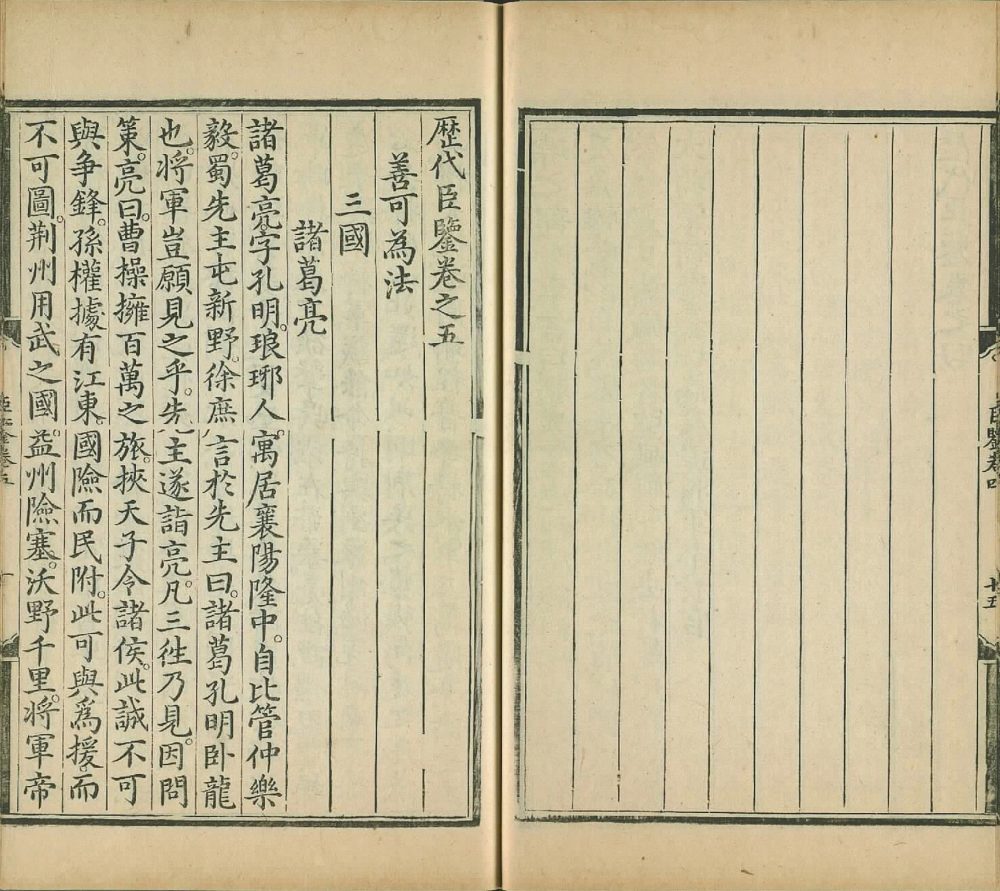 臣鑒卷四
十五
歷代臣鑒卷之五
善可為法
三國
諸葛亮
諸葛亮字孔明。琅琊人。寓居襄陽隆中。自比管仲樂
毅。蜀先主屯新野。徐庶言於先主曰。諸葛孔明卧龍
也。將軍豈願見之乎。先主遂詣亮。凡三徃乃見。因問
策。亮曰。曹操擁百萬之旅。挾天子令諸侯。此誠不可
與争鋒。孫權據有江東。國險而民附。此可與爲援。而
不可圖。荆州用武之國。益州險塞。沃野千里。將軍帝